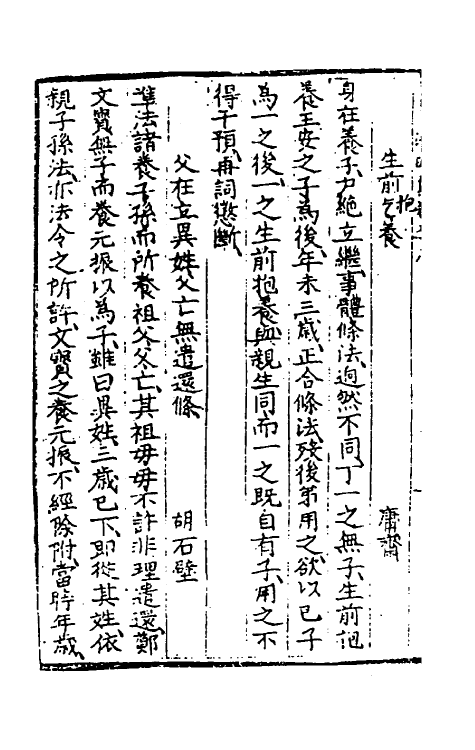 生前乞養 庸齋
抱
身在養子户絶立繼事體條法逈然不同丁一之無子生前抱
養王安之子為後年未三歲正合條法殁後弟用之欲以已子
為一之後一之生前抱養與親生同而一之既自有子用之不
得干預再詞懲斷
父在立異姓父亡無遣還條 胡石壁
準法諸養子孫而所養祖父父亡其祖母母不許非理遣還鄭
文寶無子而養元振以為子雖曰異姓三歲已下即從其姓依
親子孫法亦法令之所許文寶之養元振不經除附當時年歲